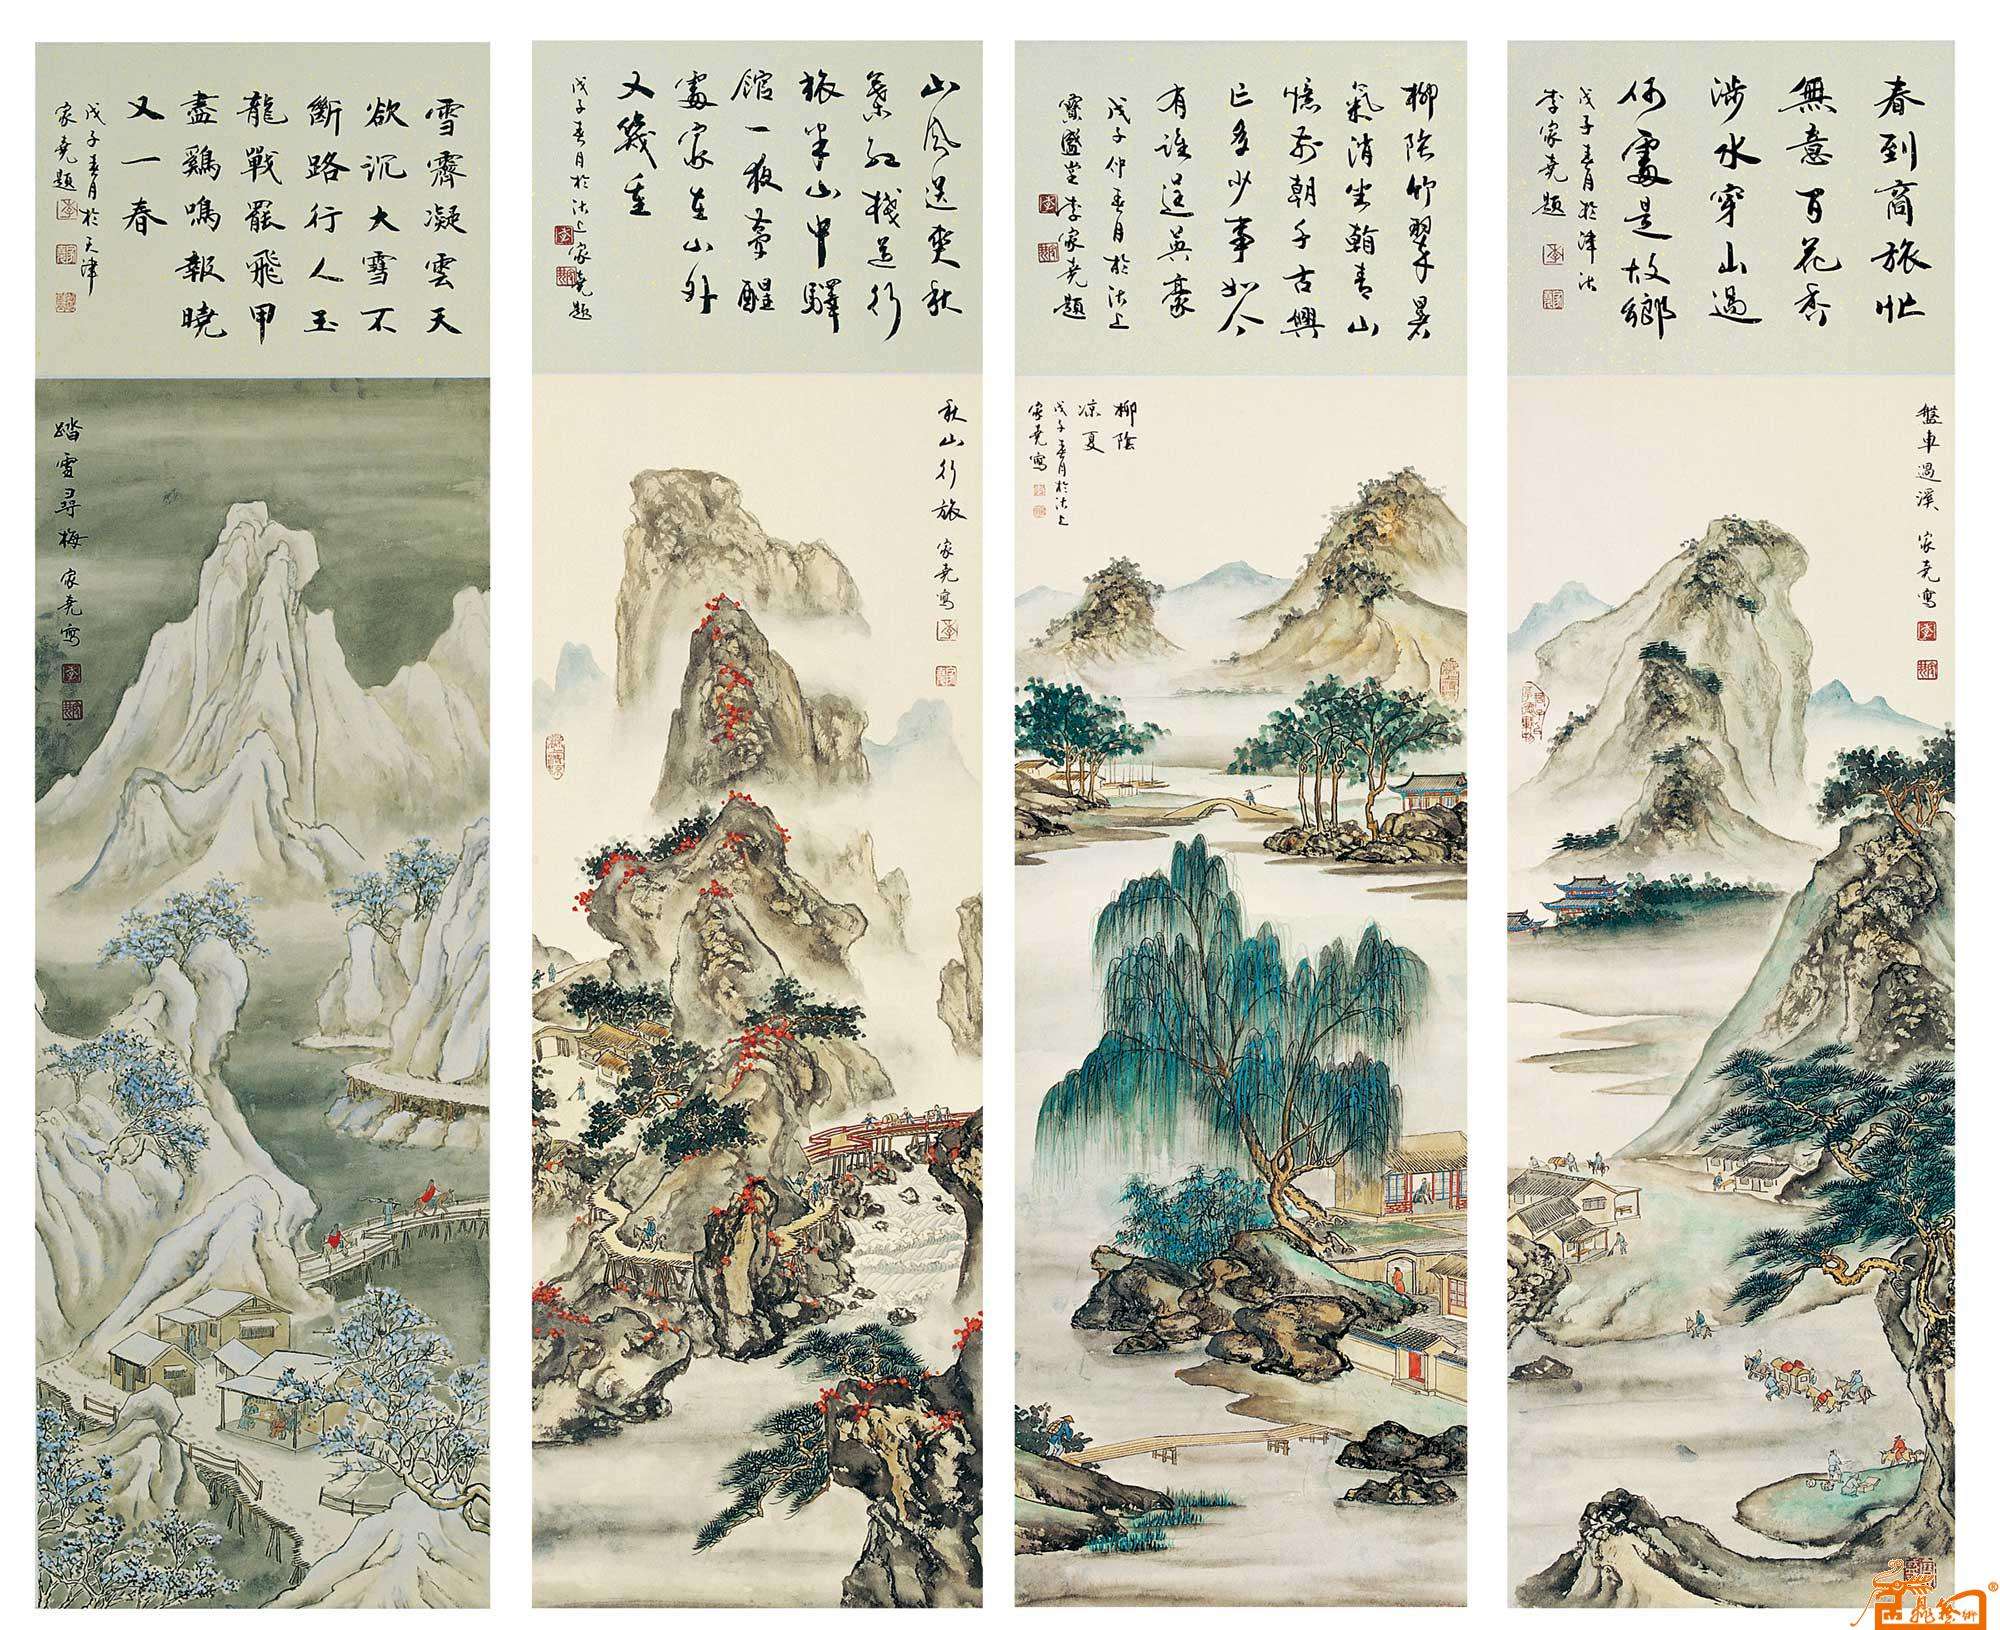 春到商旅忙
無意百花香
涉水穿山過
何處是故鄉
戊子春月於津沽
李家堯題
盤車過溪 家堯寫
柳陰竹翠暑
氣消坐翰青山
憶前朝千古興
亡多少事如今
有誰逞英豪
戊子仲春月於沽上
寶墨堂李家堯題
柳陰
凉夏
戊子春月於沽上
家堯寫
山風送爽秋
葉紅棧道行
旅半山中驛
館一夜夢醒
處家在山外
又幾重
戊子春月於沽上家堯題
秋山行旅 家堯寫
雪霽凝雲天
欲沉大雪不
斷路行人玉
龍戰罷飛甲
盡鷄鳴報曉
又一春
戊子春月於天津
家堯題
踏雪尋梅 家堯寫